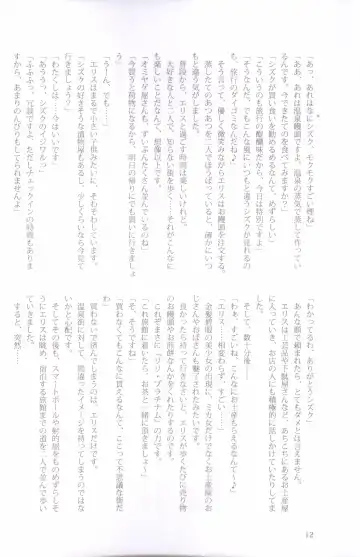 「あっ、あれはなにシズク、モクモクすごい煙ね」
「ああ、あれは温泉饅頭です。温泉の蒸気で蒸して作っているんです。今できたてのを食べてみますか？」
「シズクが買い食いを勧めるなんて、めずらしい」
「こういうのも旅行の醍醐味だから、今日は特別ですよ」
「旅行のダイゴミなんだね♪」
そう言って、優しく微笑みながらエリスはお饅頭を注文する。
蒸したてのあつあつを二人でほうばっていると、確かにいつもと違う気がした。
でも、たしかにこんな風にいつもと違うシズクが見れるのも楽しい。
普段から、エリスと過ごす時間は楽しいけれど、
大好きな人と二人で、知らない街を歩く…それがこんなにも楽しいことだなんて、想像以上です。
「オミヤゲ屋さんも、ずいぶんたくさん並んでいるのね」
「今買うと荷物になるから、明日の帰りにでも買いに行きましょう」
「うーん　でも…」
エリスはまるで小さい子供みたいに、そわそわしています。
「シズクの好きそうな漬物屋もあるし、少しくらいなら今見て行きましょう？」
「わたくしは…今はいいです」
「あ、シズクのイジワルっ」
「ふふふっ、冗談です。ただしチェックインの時間もありますから、あまりのんびりもしてられませんよ」
「わかってるわ、ありがとうシズク」
あんな顔で頼まれたら、とてもダメとは言えません。
エリスは工芸品や下駄屋さんなど、あちこちにあるお土産屋に入っていき、お店の人にも積極的に話しかけていたりしてました。
そして、数十分後――
「わぁ、すごいね、こんなにお土産もらえるなんて〜♪」
「エリス…相変わらず、すごい…」
金髪碧眼の美少女の出現に、ミカ女だけでなくお土産屋のおじさんやおばさんも魅了されたみたいです。
良かったら持っていきなさいと、エリスが歩くたびに売り物のお饅頭やお煎餅なんかをくれたりするのです。
これぞまさに『リリ・プラチナム』の力…
「これ旅館に着いたら、お茶と一緒に頂きましょ〜」
「そ、そうですね」
「買わなくてもこんなに貰えるなんて、ここって不思議な街だわ」
買わないで済んでしまうのは、エリスだけです。
温泉街に対して、間違ったイメージを持ってしまってはないかと心配です。
そしてその後も、スマートボールや射的屋をものめずらしそうにエリスは眺め、宿泊する旅館までの道を二人で並んで歩いていきました。
すると、突然…
12